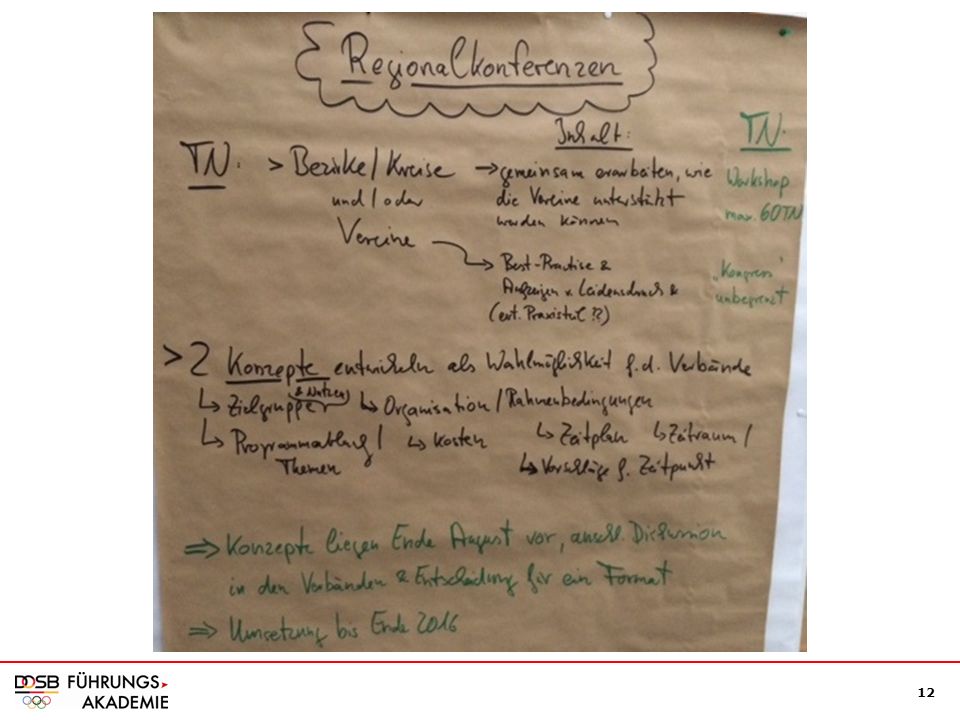 Regionalkonferenzen
TN: > Bezirke/Kreise
und/oder
Vereine
Inhalt:
→ gemeinsam erarbeiten, wie
die Vereine unterstützt
werden können
→ Best-Practise &
Aufzeigen v. Leidensdruck &
(evt. Praxisteil !?)
TN:
Workshop
max. 60TN
„Kongress"
unbegrenzt
> 2 Konzepte entwickeln als Wahlmöglichkeit f.d. Verbände
↳ Zielgruppen & Nutzen ↳ Organisation/Rahmenbedingungen
↳ Programmablauf/ ↳ Kosten ↳ Zeitplan ↳ Zeitraum/
Themen ↳ Vorschläge f. Zeitpunkt
⇒ Konzepte liegen Ende August vor, anschl. Diskussion
in den Verbänden & Entscheidung für ein Format
⇒ Umsetzung bis Ende 2016
DOSB FÜHRUNGS
AKADEMIE
12